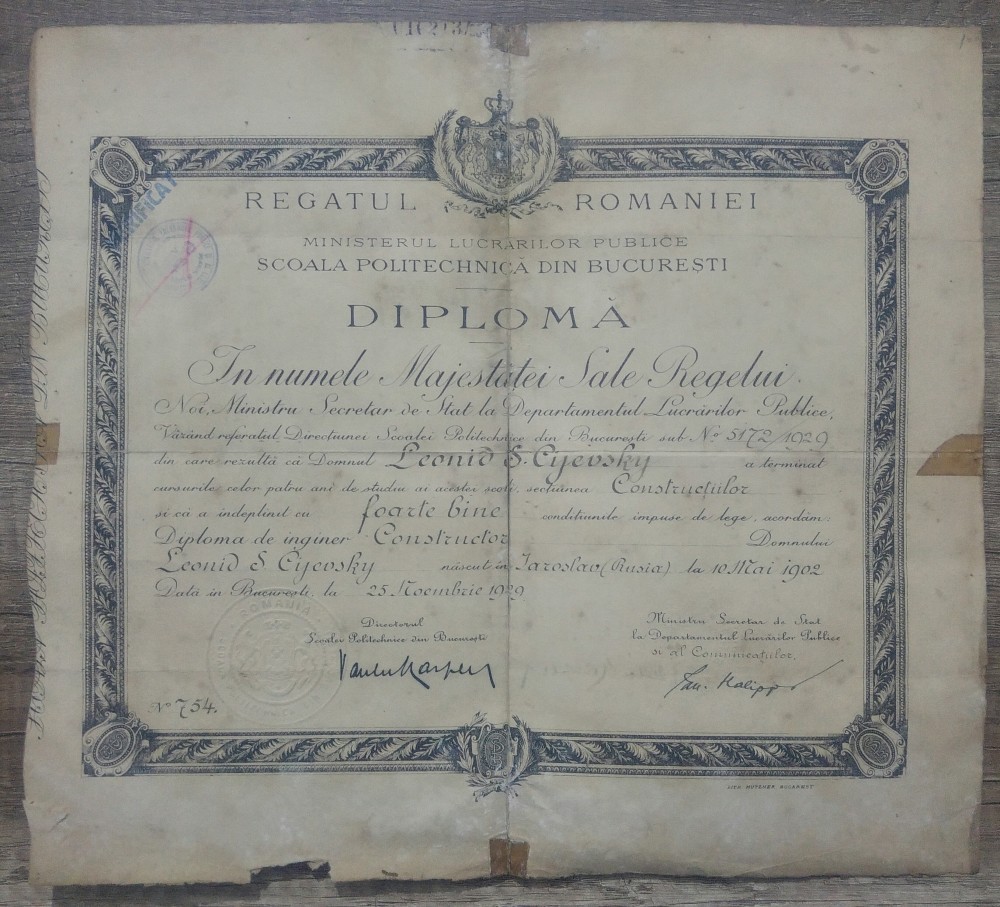 REGATUL ROMANIEI
MINISTERUL LUCRĂRILOR PUBLICE
SCOALA POLITECHNICĂ DIN BUCUREȘTI
DIPLOMĂ
In numele Majestăței Sale Regelui.
Noi, Ministru Secretar de Stat la Departamentul Lucrărilor Publice,
Văzând referatul Direcțiunei Scoalei Politechnice din București sub No 5172/1929
din care rezultă că Domnul Leonid S. Cijevsky a terminat
cursurile celor patru ani de studiu ai acestei școli, secțiunea Construcțiilor
si că a indeplinit cu foarte bine condițiunile impuse de lege, acordăm:
Diploma de inginer Constructor Domnului
Leonid S. Cijevsky născut in Iaroslav (Rusia) la 10 Mai 1902
Dată in București, la 25 Noembrie 1929
Directorul
Școalei Politechnice din București
Ministru Secretar de Stat
la Departamentul Lucrărilor Publice
si al Comunicațiilor,
ROMANIA
No 754.
VERIFICAT
DIN BUCUREȘTI